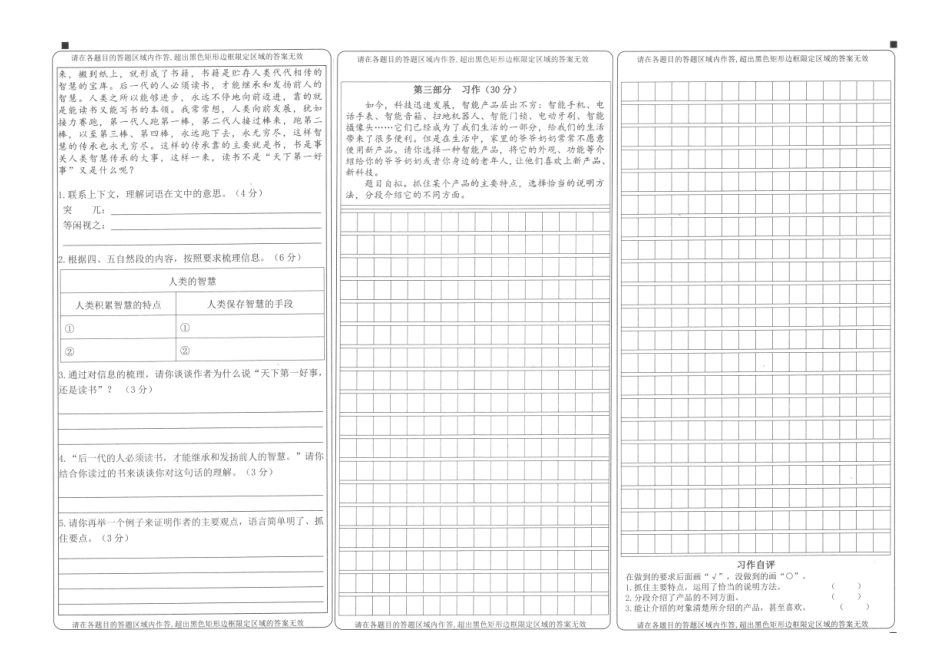 请在各题目的答题区域内作答,超出黑色矩形边框限定区域的答案无效
来，搬到纸上，就形成了书籍，书籍是贮存人类代代相传的
智慧的宝库。后一代的人必须读书，才能继承和发扬前人的
智慧。人类之所以能够进步，永远不停地向前迈进，靠的就
是能读书又能写书的本领。我常常想，人类向前发展，犹如
接力赛跑，第一代人跑第一棒，第二代人接过棒来，跑第二
棒，以至第三棒、第四棒，永远跑下去，永无穷尽，这样智
慧的传承也永无穷尽。这样的传承靠的主要就是书，书是事
关人类智慧传承的大事，这样一来，读书不是“天下第一好
事”又是什么呢？
1.联系上下文，理解词语在文中的意思。（4 分）
突　　兀：
等闲视之：
2.根据四、五自然段的内容，按照要求梳理信息。（6 分）
人类的智慧
人类积累智慧的特点　人类保存智慧的手段
①　①
②　②
3.通过对信息的梳理，请你谈谈作者为什么说“天下第一好事，
还是读书”？ （3 分）
4.“后一代的人必须读书，才能继承和发扬前人的智慧。”请你
结合你读过的书来谈谈你对这句话的理解。（3 分）
5.请你再举一个例子来证明作者的主要观点，语言简单明了、抓
住要点。（3 分）
请在各题目的答题区域内作答,超出黑色矩形边框限定区域的答案无效
请在各题目的答题区域内作答,超出黑色矩形边框限定区域的答案无效
第三部分　习作（30 分）
如今，科技迅速发展，智能产品层出不穷：智能手机、电
话手表、智能音箱、扫地机器人、智能门锁、电动牙刷、智能
摄像头……它们已经成为了我们生活的一部分，给我们的生活
带来了很多便利。但是在生活中，家里的爷爷奶奶常常不愿意
使用新产品。请你选择一种智能产品，将它的外观、功能等介
绍给你的爷爷奶奶或者你身边的老年人，让他们喜欢上新产品、
新科技。
题目自拟。抓住某个产品的主要特点，选择恰当的说明方
法，分段介绍它的不同方面。
请在各题目的答题区域内作答,超出黑色矩形边框限定区域的答案无效
请在各题目的答题区域内作答,超出黑色矩形边框限定区域的答案无效
习作自评
在做到的要求后面画“√”，没做到的画“○”。
1.抓住主要特点，运用了恰当的说明方法。　（　　）
2.分段介绍了产品的不同方面。　（　　）
3.能让介绍的对象清楚所介绍的产品，甚至喜欢。　（　　）
请在各题目的答题区域内作答,超出黑色矩形边框限定区域的答案无效